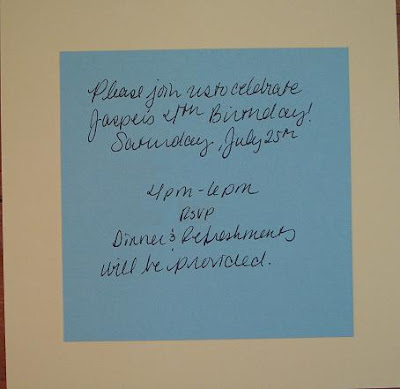 Please join us to celebrate
Jasper's 4th Birthday!
Saturday, July 25th
4pm-6pm
RSVP
Dinner & Refreshments
will be provided.